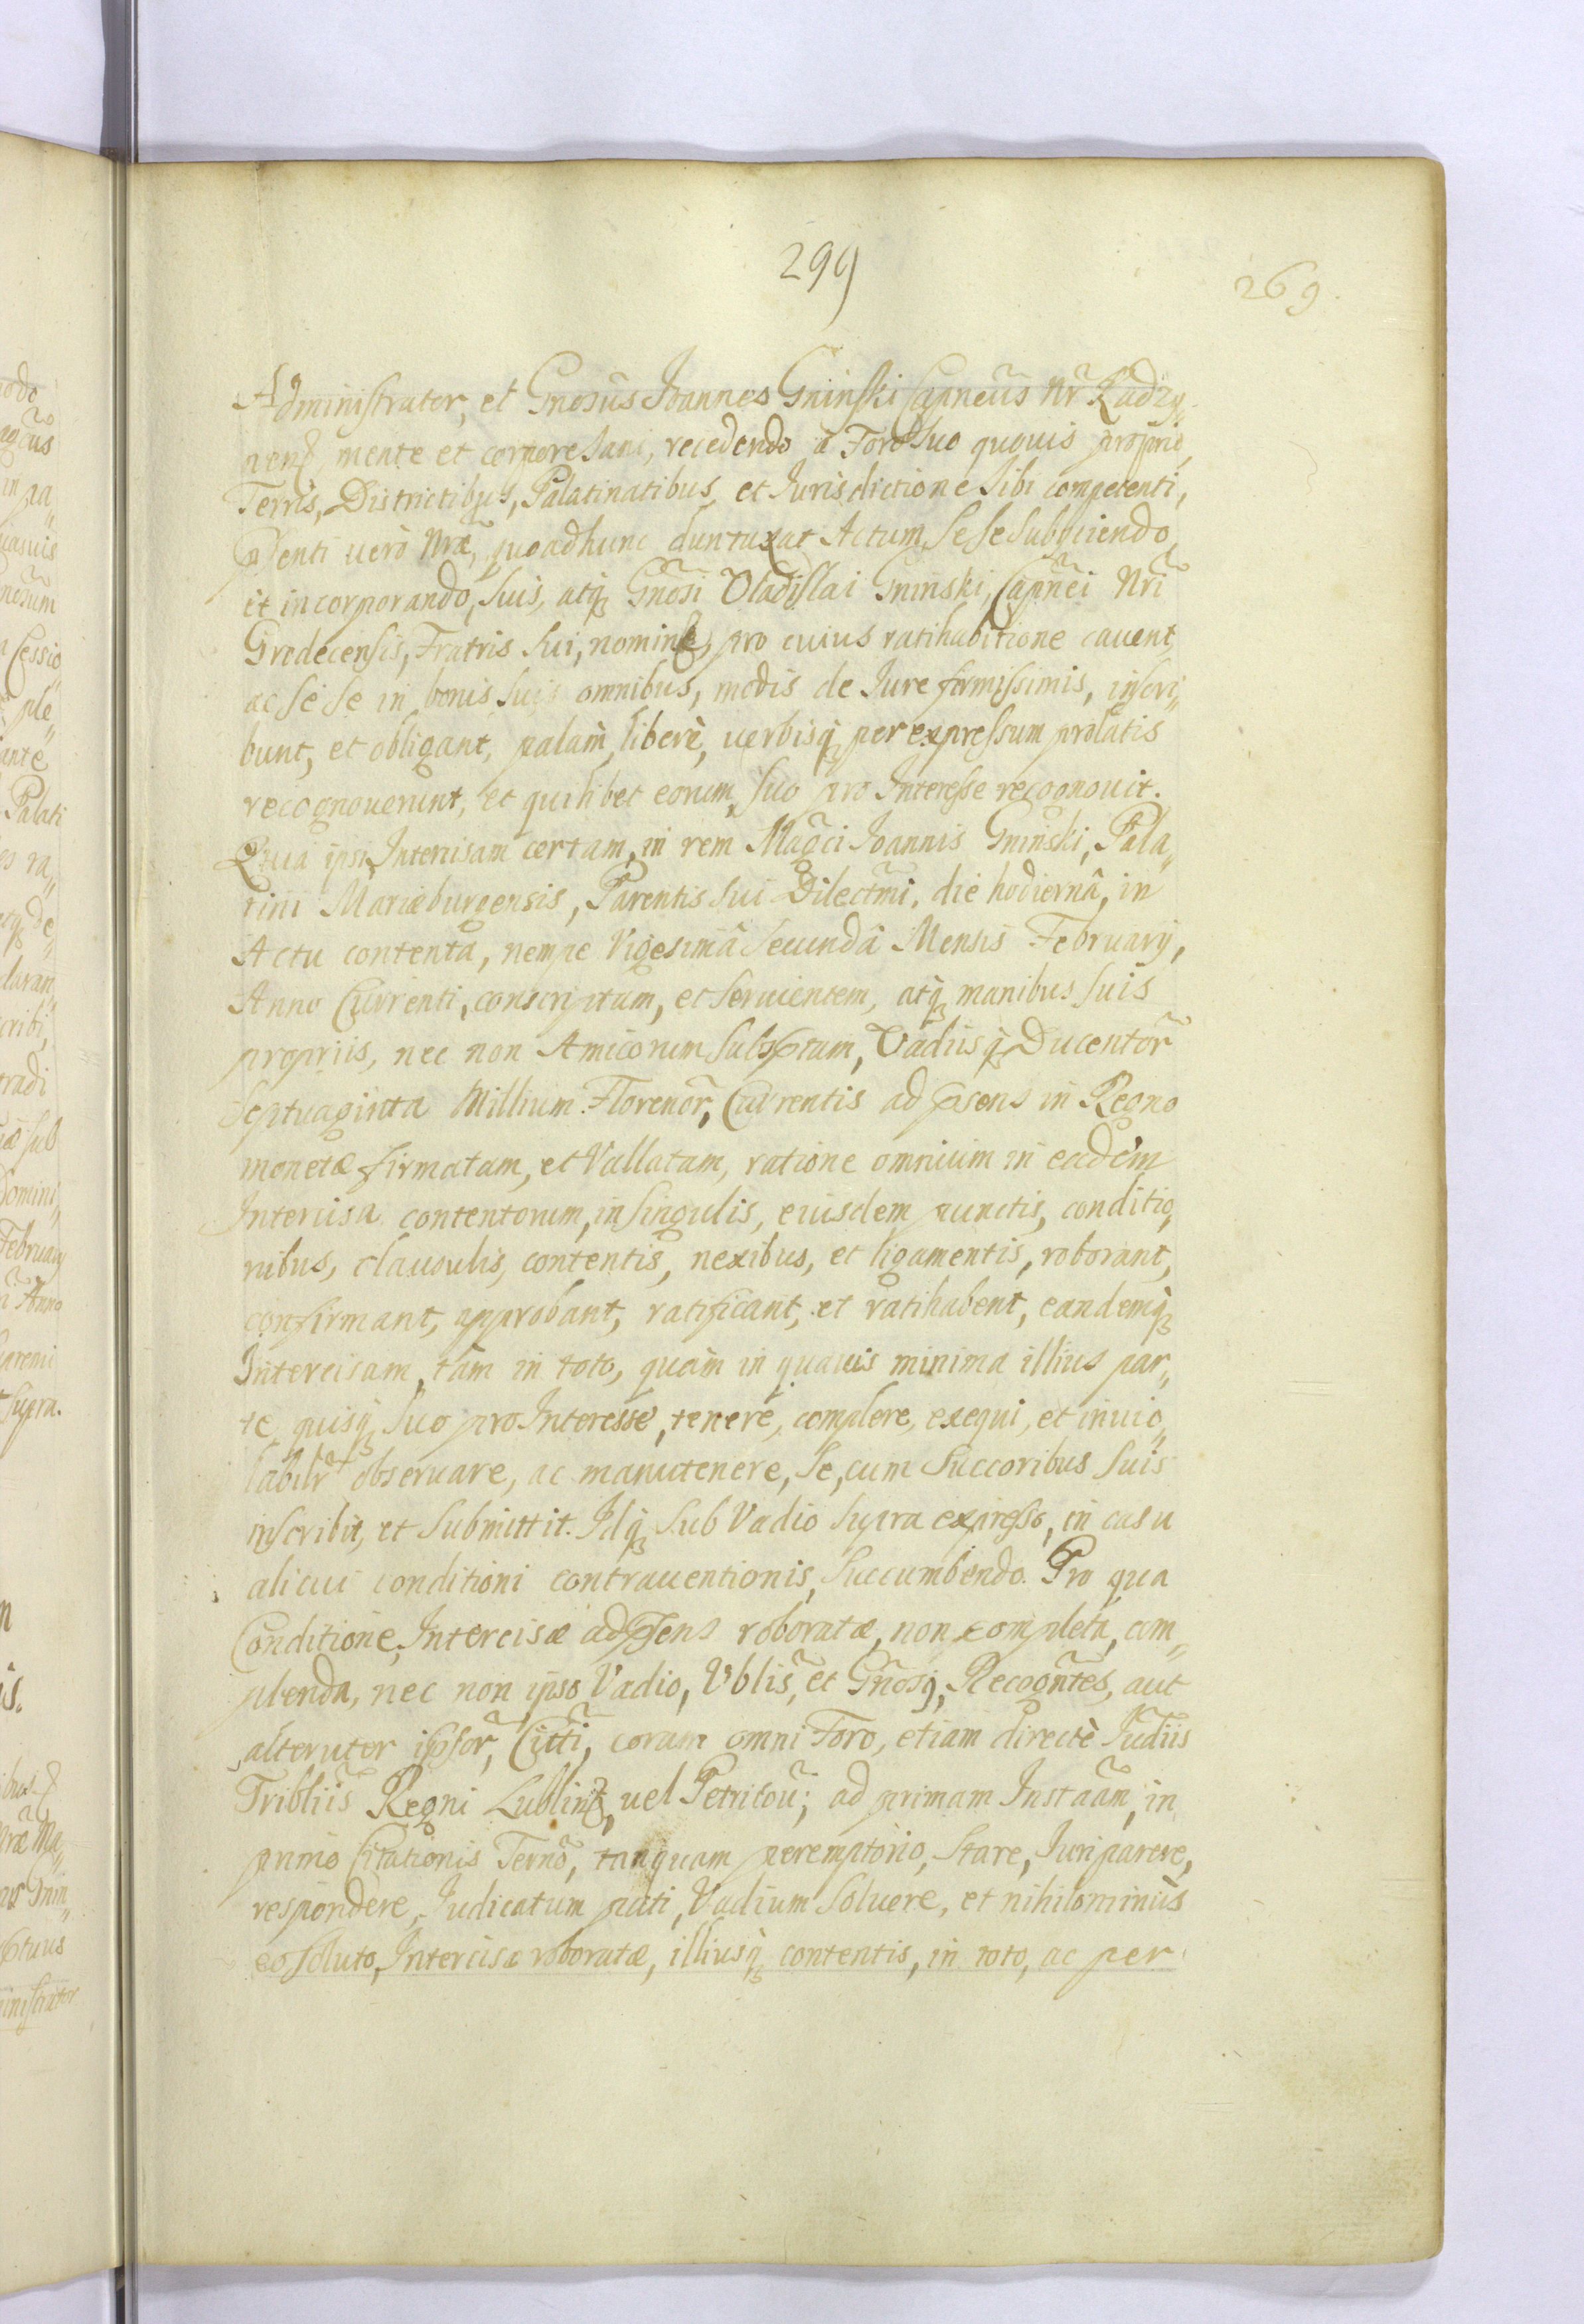 299
269.
Administrator, et Gnosūs Joannes Gninski Capneūs Nr̃ Radzy„
nens̃, mente et corpore sani, recedendo à Foro suo quouis proprio,
Terris, Districtibus, Palatinatibus, et Jurisdictione sibi competenti,
pñsenti uerò Nræ̃, quo ad hunc duntaxat Actum, sese subijciendo,
et incorporando, suis, atq; Gñosi Vladislai Gninski, Capñei Nrĩ
Grodecensis, Fratris sui, nomine, pro cuius ratihabitione cauent,
ac sese in bonis suis omnibus, modis de Jure firmissimis, inscri„
bunt, et obligant, palàm, liberè, uerbisq; per expressum prolatis
recognouerunt, et quilibet eorum, suo pro Interesse recognouit.
Quia ipsi Intercisam certam, in rem Magc̃i Joannis Gninski, Pala„
tini Mariæburgensis, Parentis sui Dilectm̃i, die hodiernâ, in
Actu contenta, nempe Vigesimâ Secundâ Mensis February,
Anno Currenti, conscriptam, et seruientem, atq; manibus suis
propriis, nec non Amicorum subsptam, Vadiisq; Ducentor̃
Septuaginta Millium Florenor̃, Currentis ad psens in Regno
monetæ firmatam, et Vallatam, ratione omnium in eadem
Intercisa contentorum, in singulis, eiusdem punctis, conditio„
nibus, clausulis, contentis, nexibus, et ligamentis, roborant,
confirmant, approbant, ratificant, et ratihabent, eandemq;
Intercisam, tàm in toto, quàm in quauis minima illius par„
te, quisq; suo pro Interesse, tenere, complere, exequi, et inuio„
labilr̃ obseruare, ac manutenere, se, cum Succoribus suis
inscribit, et submittit. Idq; sub Vadio supra expresso, in casu
alicui conditioni contrauentionis, succumbendo. Pro qua
Conditione, Intercisæ ad psens roboratæ, non completa, com„
plenda, nec non ipso Vadio, Vblis̃, et Gñosi, Recogñtes, aut
alteruter ipsor̃, Citti̇̃, coram omni Foro, etiam directè Judiis
Tribliis̃ Regni Lublin̄, uel Petricou; ad primam Instaãm, in
primo Citationis Ternõ, tanquam peremptorio, stare, Juri parere,
respondere, Judicatum pati, Vadium soluere, et nihilominùs
eo soluto, Intercisæ roboratæ, illiusq; contentis, in toto, ac per